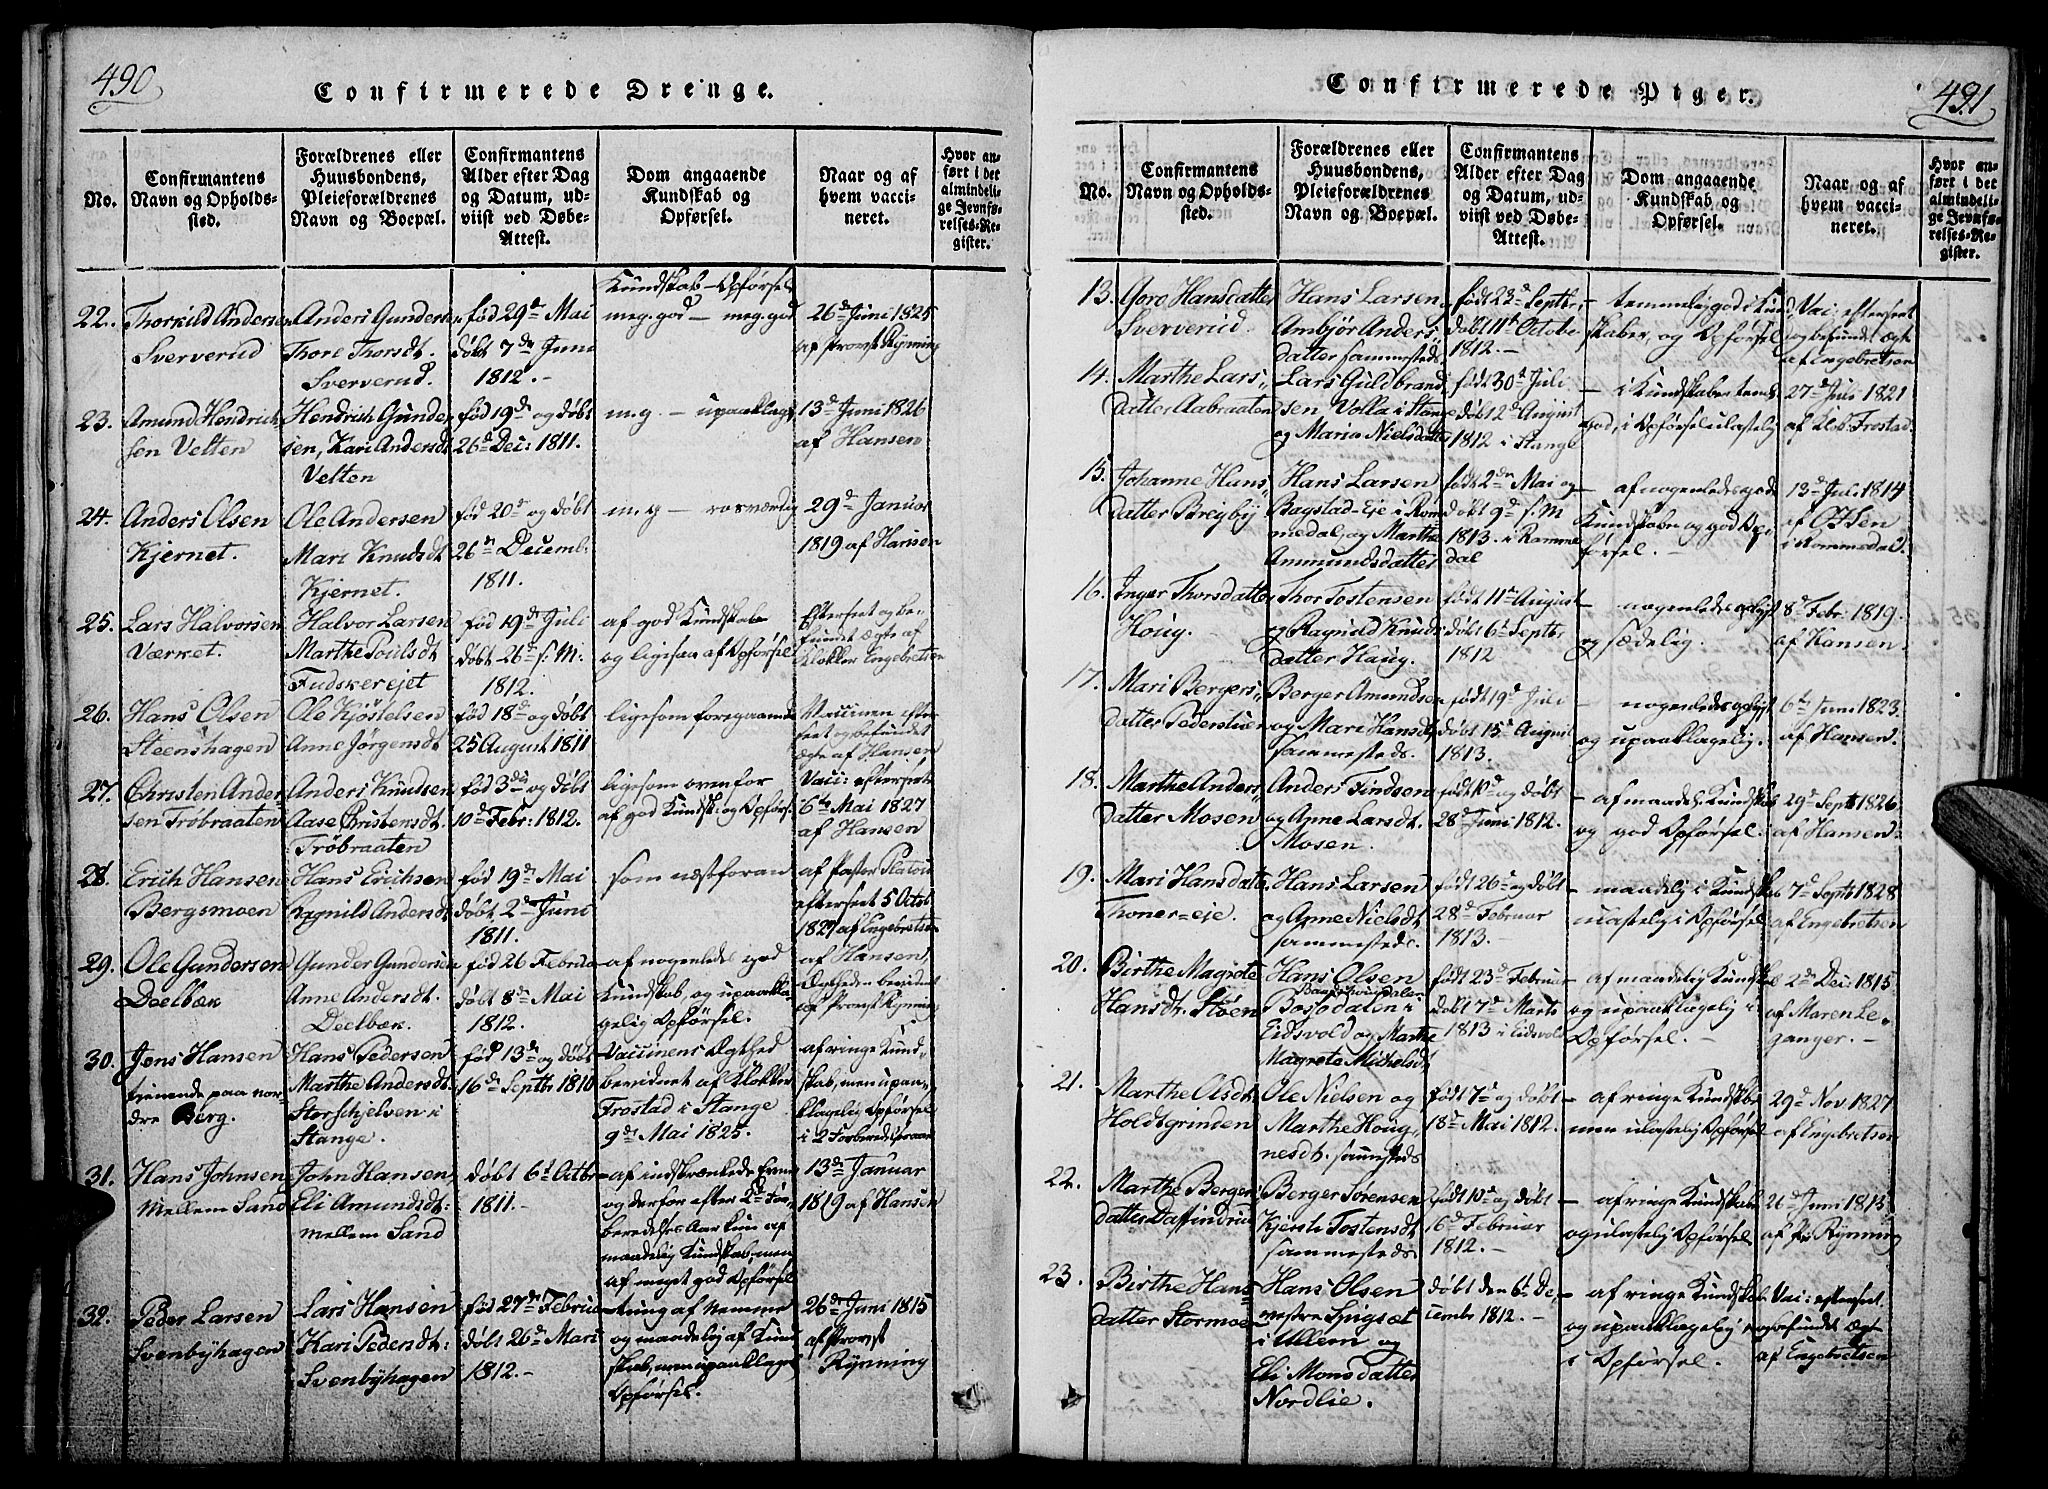 490
Confirmerede Drenge.
No.
Confirmantens
Navn og Opholds-
sted.
Forældrenes eller
Huusbondens,
Pleieforældrenes
Navn og Boepæl.
Confirmantens
Alder efter Dag
og Datum, ud-
viist ved Døbe-
Attest.
Dom angaaende
Kundskab og
Opførsel.
Naar og af
hvem vacci-
neret.
Hvor an-
ført i det
almindeli-
ge Jevnfø-
relses-Re-
gister.
Kundskab – Opførsel
22.
Thorkild Andersen
Sververud
Anders Gunders
Thore Thorsdt.
Sververud.
fød 29de Mai
døbt 7de Juni
1812.
meg. god – meg. god
26de Juni 1825
af Provst Rynning
23.
Amund Hendrich
sen Velten
Hendrich Gunder
sen, Kari Andersdt
Velten
fød 19de og døbt
26de Dec: 1811.
m. g. – upaaklagl
13de Juni 1826
af Hansen
24.
Anders Olsen
Kjernet.
Ole Andersen
Mari Knudsdt
Kjernet.
fød 20de og døbt
26de Decemb.
1811.
m. g – rosværdig
29de Januar
1819 af Hansen
25.
Lars Halvorsen
Værket.
Halvor Larsen
Marthe Poulsdt
Fudskerejet
fød 19de Juli
døbt 26de s: M:
1812.
af god Kundskab
og ligesaa af Opførsel
Efterseet og be-
fundet ægte af
Klokker Engebretsen
26.
Hans Olsen
Steenshagen
Ole Kjøstelsen
Anne Jørgensdt
fød 18de og døbt
25 August 1811
ligesom foregaaende
Vaccinen efter
seet og befundet
ægte af Hansen
27.
Christen Ander
sen Trøbraaten
Anders Knudsen
Aase Christensdt.
Trøbraaten
fød 3de og døbt
10de Febr: 1812.
ligesom ovenfor
af god Kundsk: og Opførs:
Vacc: efterseet
6te Mai 1827
af Hansen
28.
Erich Hansen
Bergsmoen
Hans Erichsen
Ragnild Andersdt
fød 19de Mai
døbt 2de Juni
1811.
som næstforan
af Pastor Platou
efterseet 5 Octob
1827 af Engebretsen
29.
Ole Gundersen
Deelbæk
Gunder Gundersen
Anne Andersdt.
Deelbæk.
fød 26 Februa
døbt 8de Mai
1812.
af nogenledes god
Kundskab, og upaakla
gelig Opførsel.
af Hansen,
Ægtheden bevidnet
af Provst Rynning
30.
Jens Hansen
tienende paa nor-
dre Berg.
Hans Pedersen
Marthe Andersdt.
Storschjelven i
Stange.
fød 13de og døbt
16de Septbr 1810
Vaccinens Ægthed
bevidnet af Klokker
Frostad i Stange
9de Mai 1825.
af ringe Kund-
skab, men upaa-
klagelig Opførsel
31.
Hans Johnsen
Mellem Sand
John Hansen,
Eli Amundsdt:
mellem Sand
døbt 6te Octbr
1811.
af indskrænkede Evne
og derfor efter
beredelses Aar kun af
maadelig Kundskab, men
af meget god Opførsel
13de Januar
1819 af Hansen
32.
Peder Larsen
Svenbyhagen
Lars Hansen
Kari Pedersdt:
Svenbyhagen
fød 27de Februa
døbt 26de Mari
1812.
tung af Nemme
og maadelig af Kund
skab, men upaaklagel
Opførsel.
26de Juni 1815
af Provst
Rynning
491
Confirmerede Piger.
No.
Confirmantens
Navn og Opholds-
sted.
Forældrenes eller
Huusbondens,
Pleieforældrenes
Navn og Boepæl.
Confirmantens
Alder efter Dag
og Datum, ud-
viist ved Døbe-
Attest.
Dom angaaende
Kundskab og
Opførsel.
Naar og af
hvem vacci-
neret.
Hvor an-
ført i det
almindeli-
ge Jevnfø-
relses-Re-
gister.
13.
Goro Hansdatter
Sververud.
Hans Larsen og
Ambjør Anders,,
datter sammesteds
født 23de Septbr.
døbt 11te Octobe
1812.
temmelig god i Kund
skaber, og Opførsel
Vac: efterseet
og befundet ægte
af Engebretsen
14.
Marthe Lars,,
datter Aabraaten
Lars Guldbrand
sen Volla i Stange
og Maria Nielsdatter
født 30te Juli
døbt 12te August
1812 i Stange
i Kundskaber tem:
god, i Opførsel ulastelig
27de Juli 1821
af Klok: Frostad.
15.
Johanne Hans,,
datter Breiby
Hans Larsen
Bagstad-Eje i Rom
medal, og Marthe
Ammundsdatter
født 2de Mai og
døbt 9de s: M
1813. i Romme
dal
af nogenledes gode
Kundskaber og god Op,,
førsel.
13de Juli 1814
af Ottesen
i Rommedal.
16.
Inger Thorsdatter
Houg.
Thor Tostensen
og Ragnild Knuds
datter Haug.
født 11te August
døbt 6te Septbr
1812
nogenledes oplyst
og sædelig.
8de Febr. 1819.
af Hansen.
17.
Mari Bergers,,
datter Pederstuen
Berger Amundsen
og Mari Hansdt.
sammesteds.
født 19de Juli
døbt 15de August
1813.
nogenledes oplyst
og upaaklagelig.
6te Juni 1823.
af Hansen.
18.
Marthe Anders,,
datter Mosen
Anders Findsen
og Anne Larsdt.
Mosen.
født 10de og døbt
28de Juni 1812.
af maadel: Kundskab
og god Opførsel.
29de Septb 1826
af Hansen
19.
Mari Hansdatt.
Thoner=eje.
Hans Larsen
og Anne Nielsdt
sammesteds.
født 26de og døbt
28de Februar
1813.
maadelig i Kundskab
ulastelig i Opførsel
7de Septb 1828
af Engebretsen
20.
Birthe Magrete
Hansdt. Støen
Hans Olsen
Bossodalen i
Eidsvold og Marthe
Magrete Michelsdt
født 23de Februar
døbt 7de Marts
1813 i Eidsvold
af maadelig Kundskab
og upaaklagelig i
Opførsel.
2de Dec: 1815
af Maren Le-
ganger.
21.
Marthe Olsdt.
Holdtgrinden
Ole Nielsen og
Marthe Houg,,
nesdt. sammesteds
født 7de og døbt
18de Mai 1812.
af ringe Kundskab
men ulastelig Opførsel
29de Nov. 1827
af Engebretsen
22.
Marthe Berger,,
datter Daffindrud
Berger Sørensen
Kjersti Tostensdt
sammesteds
født 10de og døbt
16de Februar
1812.
af ringe Kundskab
og ulastelig Opførsel
26de Juni 1815
af Pr. Rynning
23.
Birthe Hans
datter Stormoe
Hans Olsen
i Ullern og
Eli Monsdatter
Nordlie.
døbt den 6te De,,
cembr 1812.
af ringe Kundskab
og upaaklagelig
i Opførsel.
Vac: efterseet
og befundet ægte
af Engebretsen